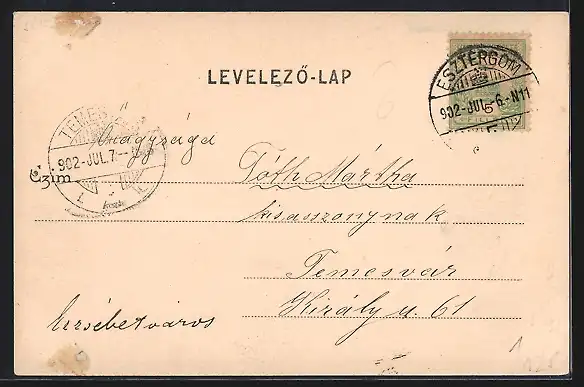 LEVELEZŐ-LAP
ESZTERGOM
902-JUL.-6.-N11
5
TEMES
902-JUL.7
Őnagysága
Czim
Tóth Mártha
kisasszonynak
Temesvár
Király u. 61
Erzsébetváros